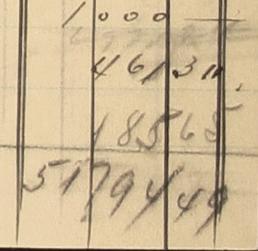 1000 —
461 31
1 85 65
5179449